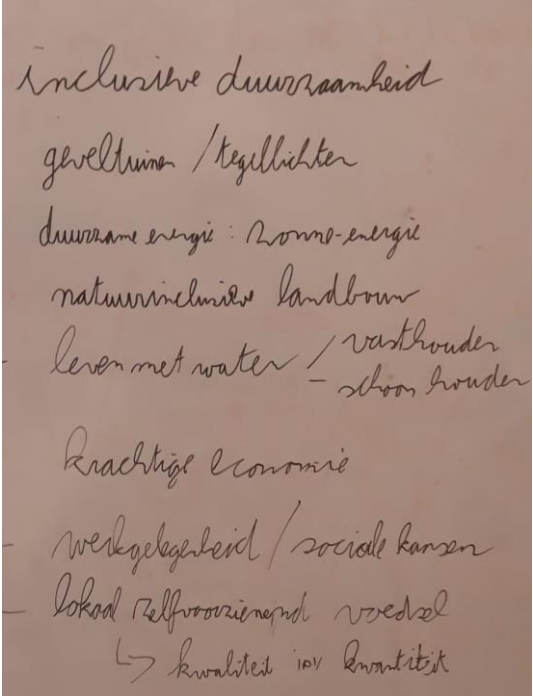 inclusieve duurzaamheid
geveltuinen / tegellichter
duurzame energie : zonne-energie
natuurinclusieve landbouw
- leven met water / vasthouden
- schoon houden
krachtige economie
- werkgelegenheid / sociale kansen
- lokaal zelfvoorzienend voedsel
↳ kwaliteit ipv kwantiteit